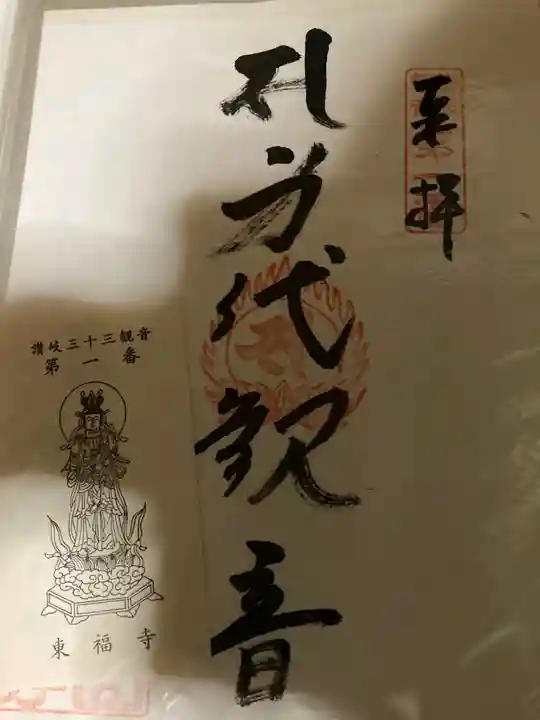 奉拝
身代観音
讃岐三十三観音
第一番
東福寺